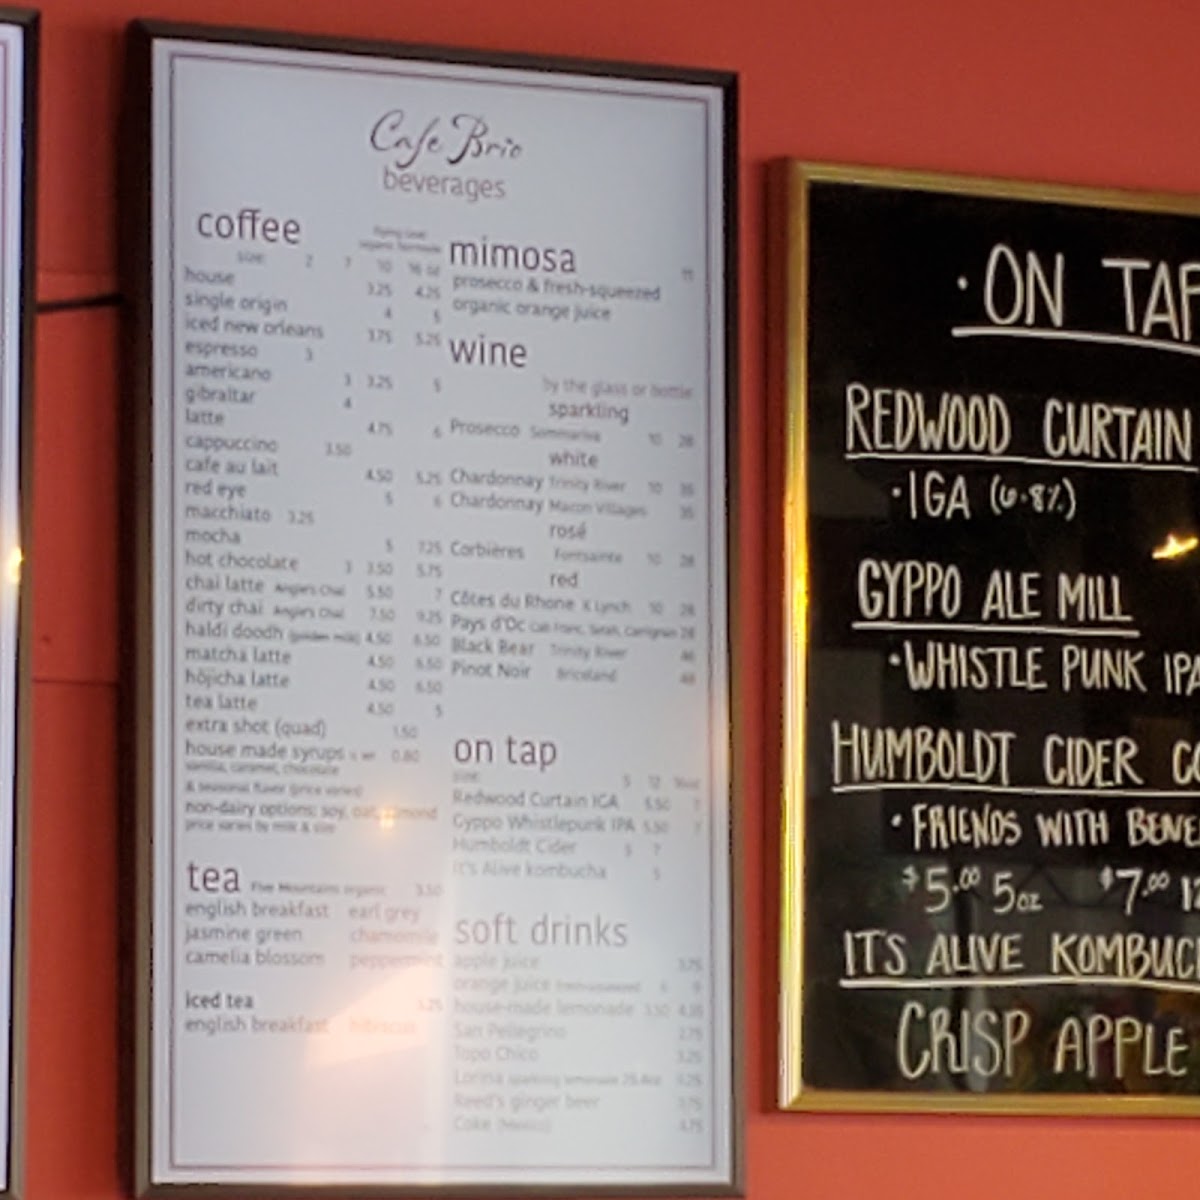 Cafe Brio
beverages
coffee
size: 2 7 10 16 oz
house 3.25 4.25
single origin 4 5
iced new orleans 3.75 5.25
espresso 3
americano 3 3.25 5
gibraltar 4
latte 4.75 6
cappuccino 3.50
cafe au lait 4.50 5.25
red eye 5 6
macchiato 3.25
mocha 5 7.25
hot chocolate 3 3.50 5.75
chai latte Angie's Chai 5.50 7
dirty chai Angie's Chai 7.50 9.25
haldi doodh (golden milk) 4.50 6.50
matcha latte 4.50 6.50
hōjicha latte 4.50 6.50
tea latte 4.50 5
extra shot (quad) 1.50
house made syrups 0.80
vanilla, caramel, chocolate
& seasonal flavor (price varies)
non-dairy options: soy, oat, almond
price varies by milk & size
tea Five Mountains organic 3.50
english breakfast earl grey
jasmine green chamomile
camelia blossom peppermint
iced tea 3.25
english breakfast hibiscus
mimosa 11
prosecco & fresh-squeezed
organic orange juice
wine
by the glass or bottle
sparkling
Prosecco Sommariva 10 28
white
Chardonnay Trinity River 10 35
Chardonnay Macon Villages 35
rosé
Corbières Fontsainte 10 28
red
Côtes du Rhone K Lynch 10 28
Pays d'Oc Cab Franc, Syrah, Carrignan 28
Black Bear Trinity River 46
Pinot Noir Briceland 48
on tap
size: 5 12 16oz
Redwood Curtain IGA 5.50 7
Gyppo Whistlepunk IPA 5.50 7
Humboldt Cider 5 7
It's Alive kombucha 5
soft drinks
apple juice 3.75
orange juice fresh-squeezed 6 9
house-made lemonade 3.50 4.95
San Pellegrino 2.75
Topo Chico 3.25
Lorina sparkling lemonade 25.4oz 9.25
Reed's ginger beer 3.75
Coke (Mexico) 3.75
· ON TAP
REDWOOD CURTAIN
· IGA (6.8%)
GYPPO ALE MILL
· WHISTLE PUNK IPA
HUMBOLDT CIDER CO
· FRIENDS WITH BENE
$5.00 5oz $7.00 12
IT'S ALIVE KOMBUC
CRISP APPLE